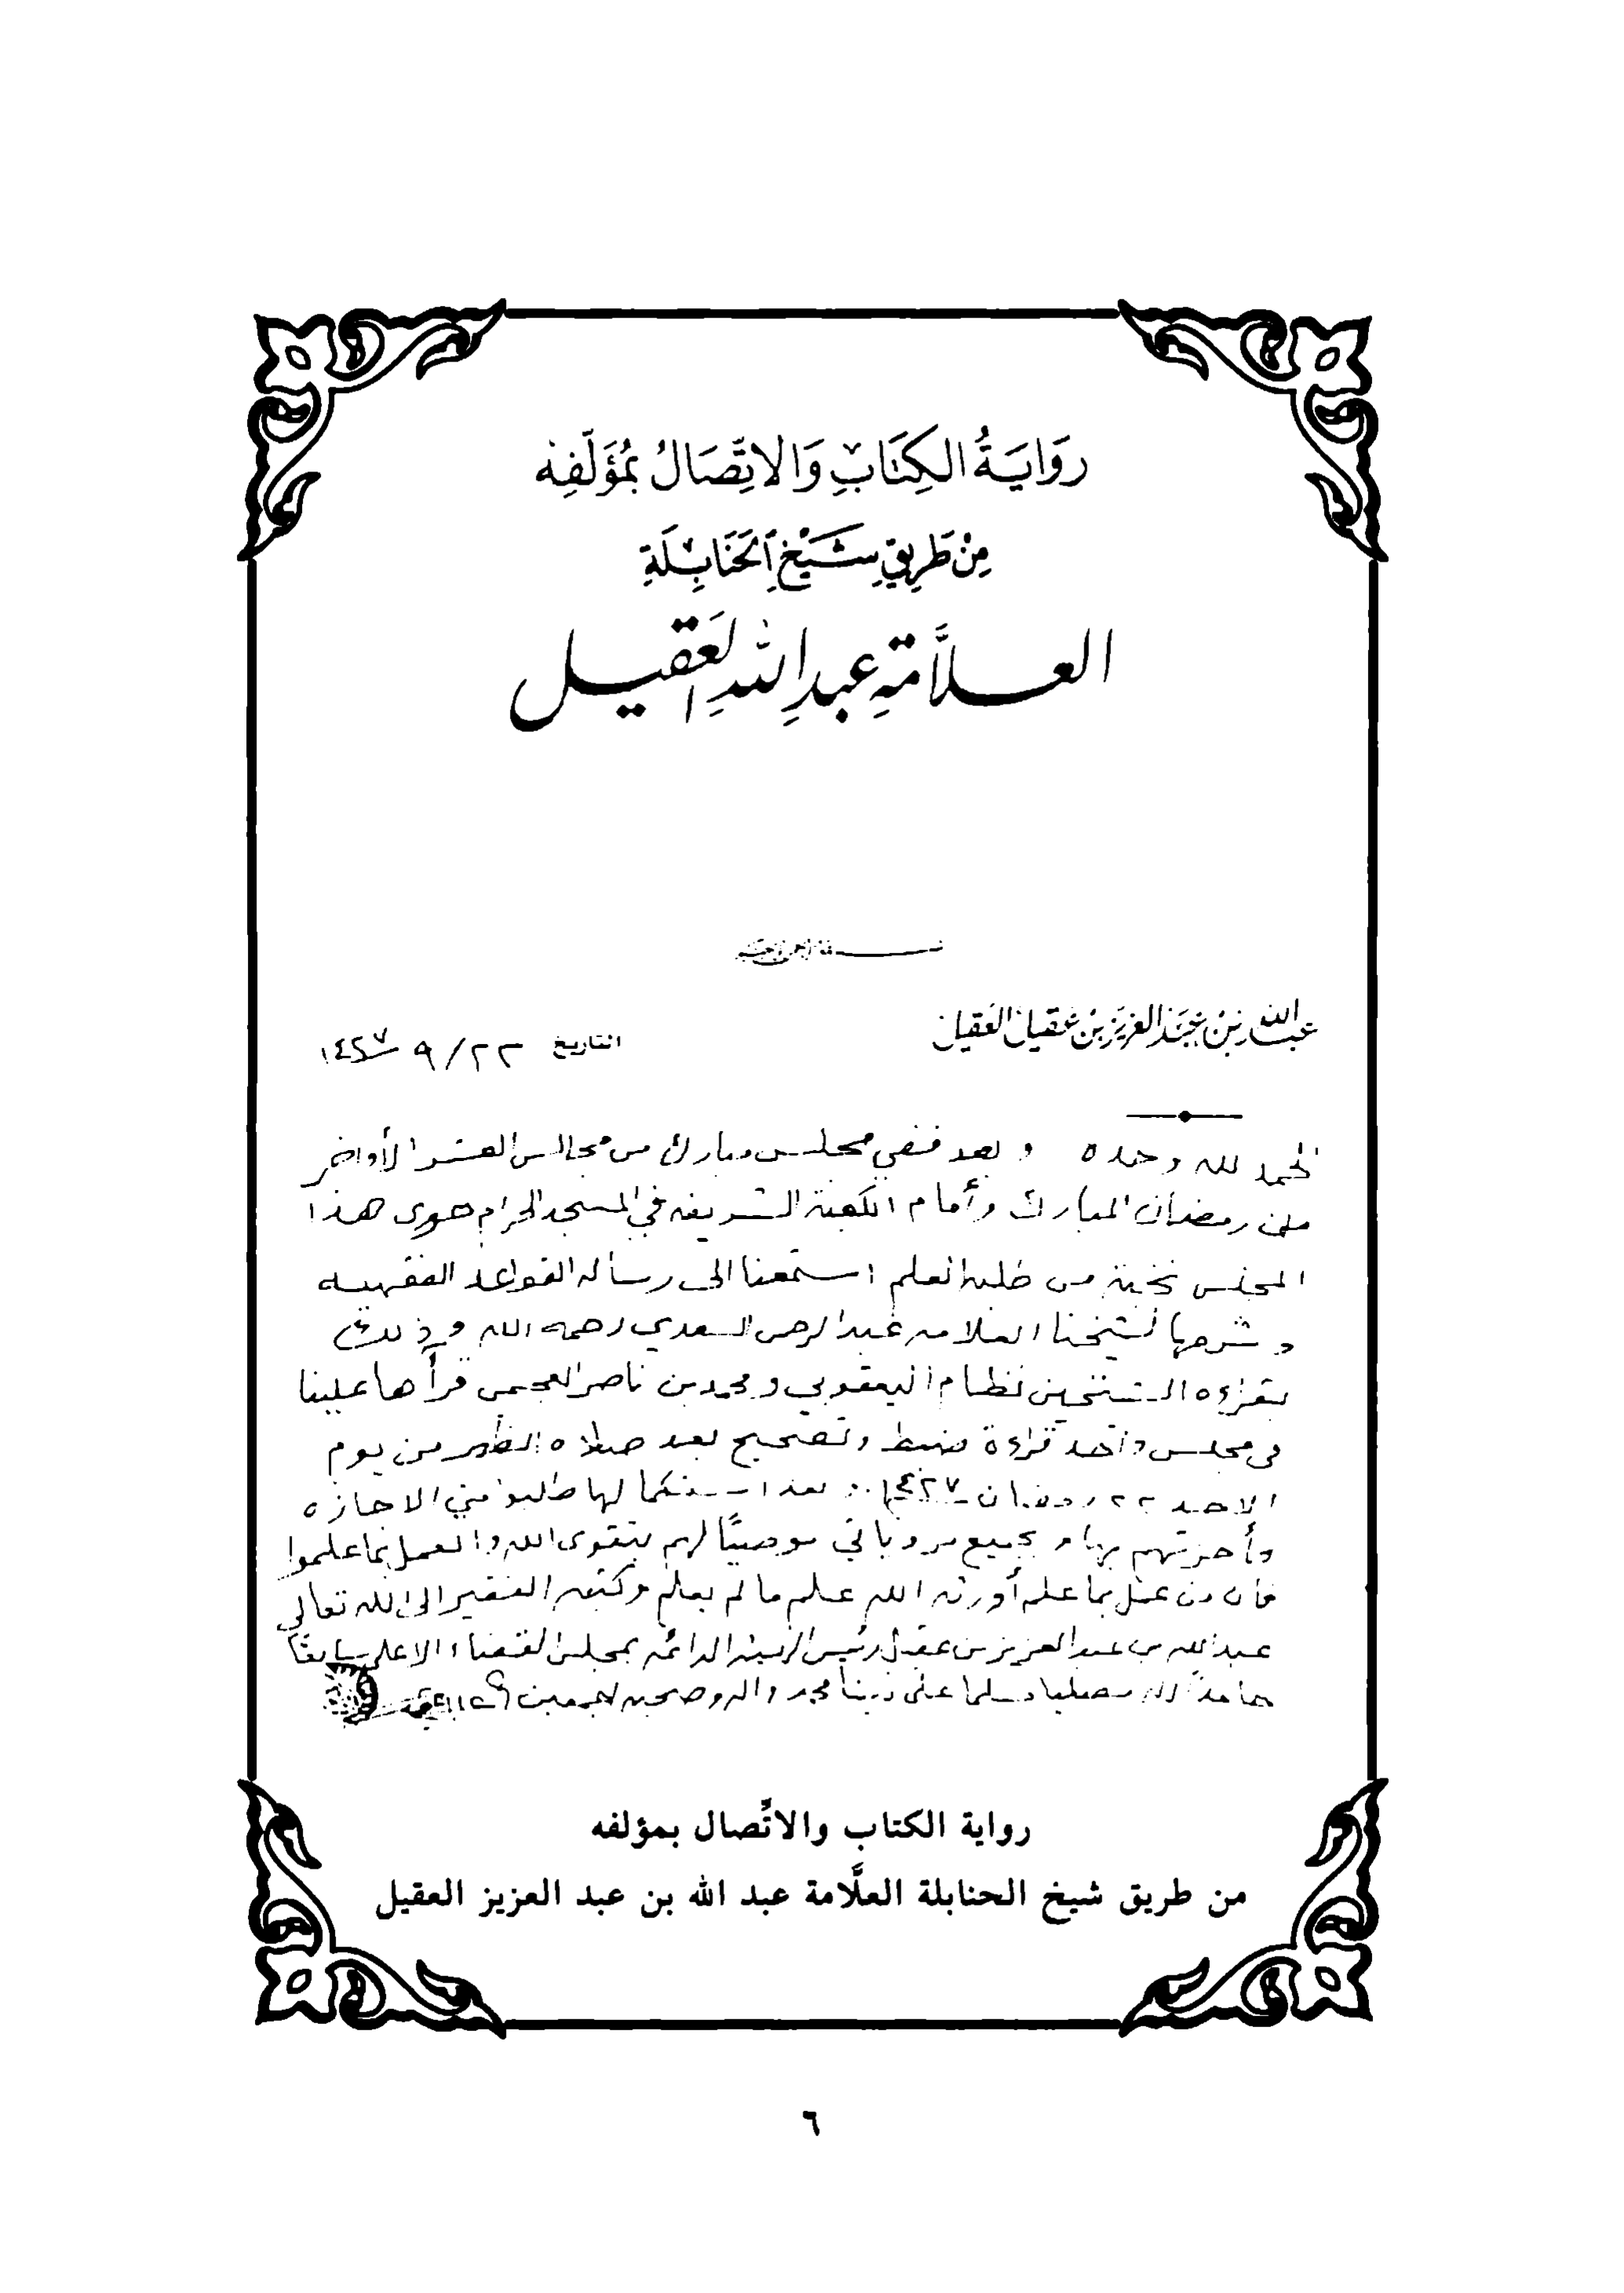 رِوَايَةُ الكِتَابِ وَالاتِّصَالُ بِمُؤَلِّفِهِ
مِنْ طَرِيقِ شَيْخِ الحَنَابِلَةِ
العلَّامَةِ عبدِ اللهِ العَقِيل
عبد الله بن عبد العزيز بن عقيل العقيل
التاريخ ٢٢ / ٩ ١٤٢٧
الحمد لله وحده وبعد ففي مجلس مبارك من مجالس العشر الأواخر
من رمضان المبارك وأمام الكعبة الشريفة في المسجد الحرام حوى هذا
المجلس نخبة من طلبة العلم استمعنا الى رسالة القواعد الفقهيه
وشرحها لشيخنا العلامه عبد الرحمن السعدي رحمه الله وذلك
بقراءه الشيخين نظام اليعقوبي ومحمد بن ناصر العجمي قرآها علينا
في مجلس واحد قراءة ضبط وتصحيح بعد صلاه الظهر من يوم
الاحد ٢٢ رمضان ١٤٢٧ وبعد استكمالها طلبوا مني الاجازه
وأجزتهم بها وبجميع مروياتي موصيًا لهم بتقوى الله والعمل بما علموا
فان من عمل بما علم أورثه الله علم ما لم يعلم وكتبه الفقير الى الله تعالى
عبد الله بن عبد العزيز بن عقيل رئيس الهيئة الدائمه بمجلس القضاء الاعلى سابقًا
حامدًا لله مصليا مسلما على نبينا محمد واله وصحبه اجمعين
رواية الكتاب والاتِّصال بمؤلفه
من طريق شيخ الحنابلة العلَّامة عبد الله بن عبد العزيز العقيل
٦